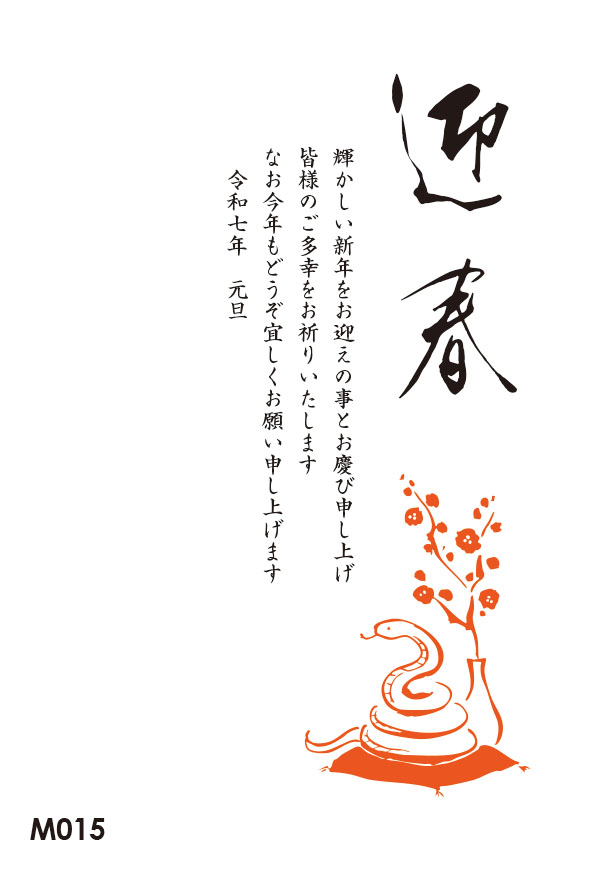 迎春
輝かしい新年をお迎えの事とお慶び申し上げ
皆様のご多幸をお祈りいたします
なお今年もどうぞ宜しくお願い申し上げます
令和七年　元旦
M015